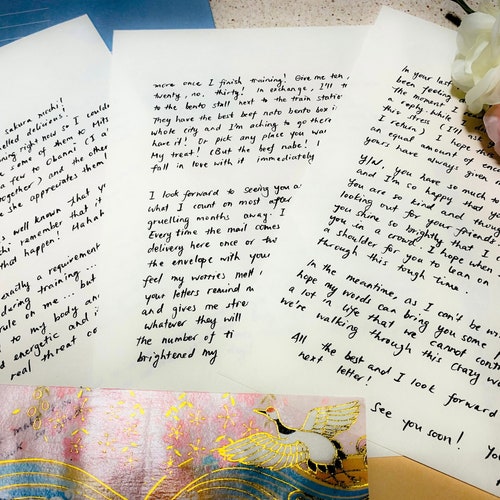 sakura mochi!
delicious!
right now so I could
some of them to Mits
a few to Obana (I a
together) and the othe
she appreciates them!
s well known that y
shi remember that i
that happen! Hahah
exactly a requiremen
during training...
rule on me... but
to my body an
d energetic and i
real threat co
more once I finish training! Give me ten,
twenty, no, thirty! In exchange, I'll t
to the bento stall next to the train statio
They have the best beef nabe bento box i
whole city and I'm aching to go there
have it! Or pick any place you wa
My treat! (But the beef nabe! I
fall in love with it immediately
I look forward to seeing you a
what I count on most after
gruelling months away. I
Every time the mail comes
delivery here once or tw
the envelope with your
feel my worries melt
your letters remind m
and gives me stre
whatever they will
The number of ti
brightened my
In your last
been feeling
The moment
a reply while
this stress (I'll
I return) I hope
an equal amount of en
yours have always given
Y/N, you have so much to
and I'm so happy that yo
You are so kind and thoug
looking out for your friend
you shine so brightly that I
you in a crowd. I hope when
a shoulder for you to lean on
through this tough time.
In the meantime, as I can't be wi
hope my words can bring you some
a lot in life that we cannot contr
we're walking through this crazy w
All the best and I look forward
next letter!
See you soon!
Yo